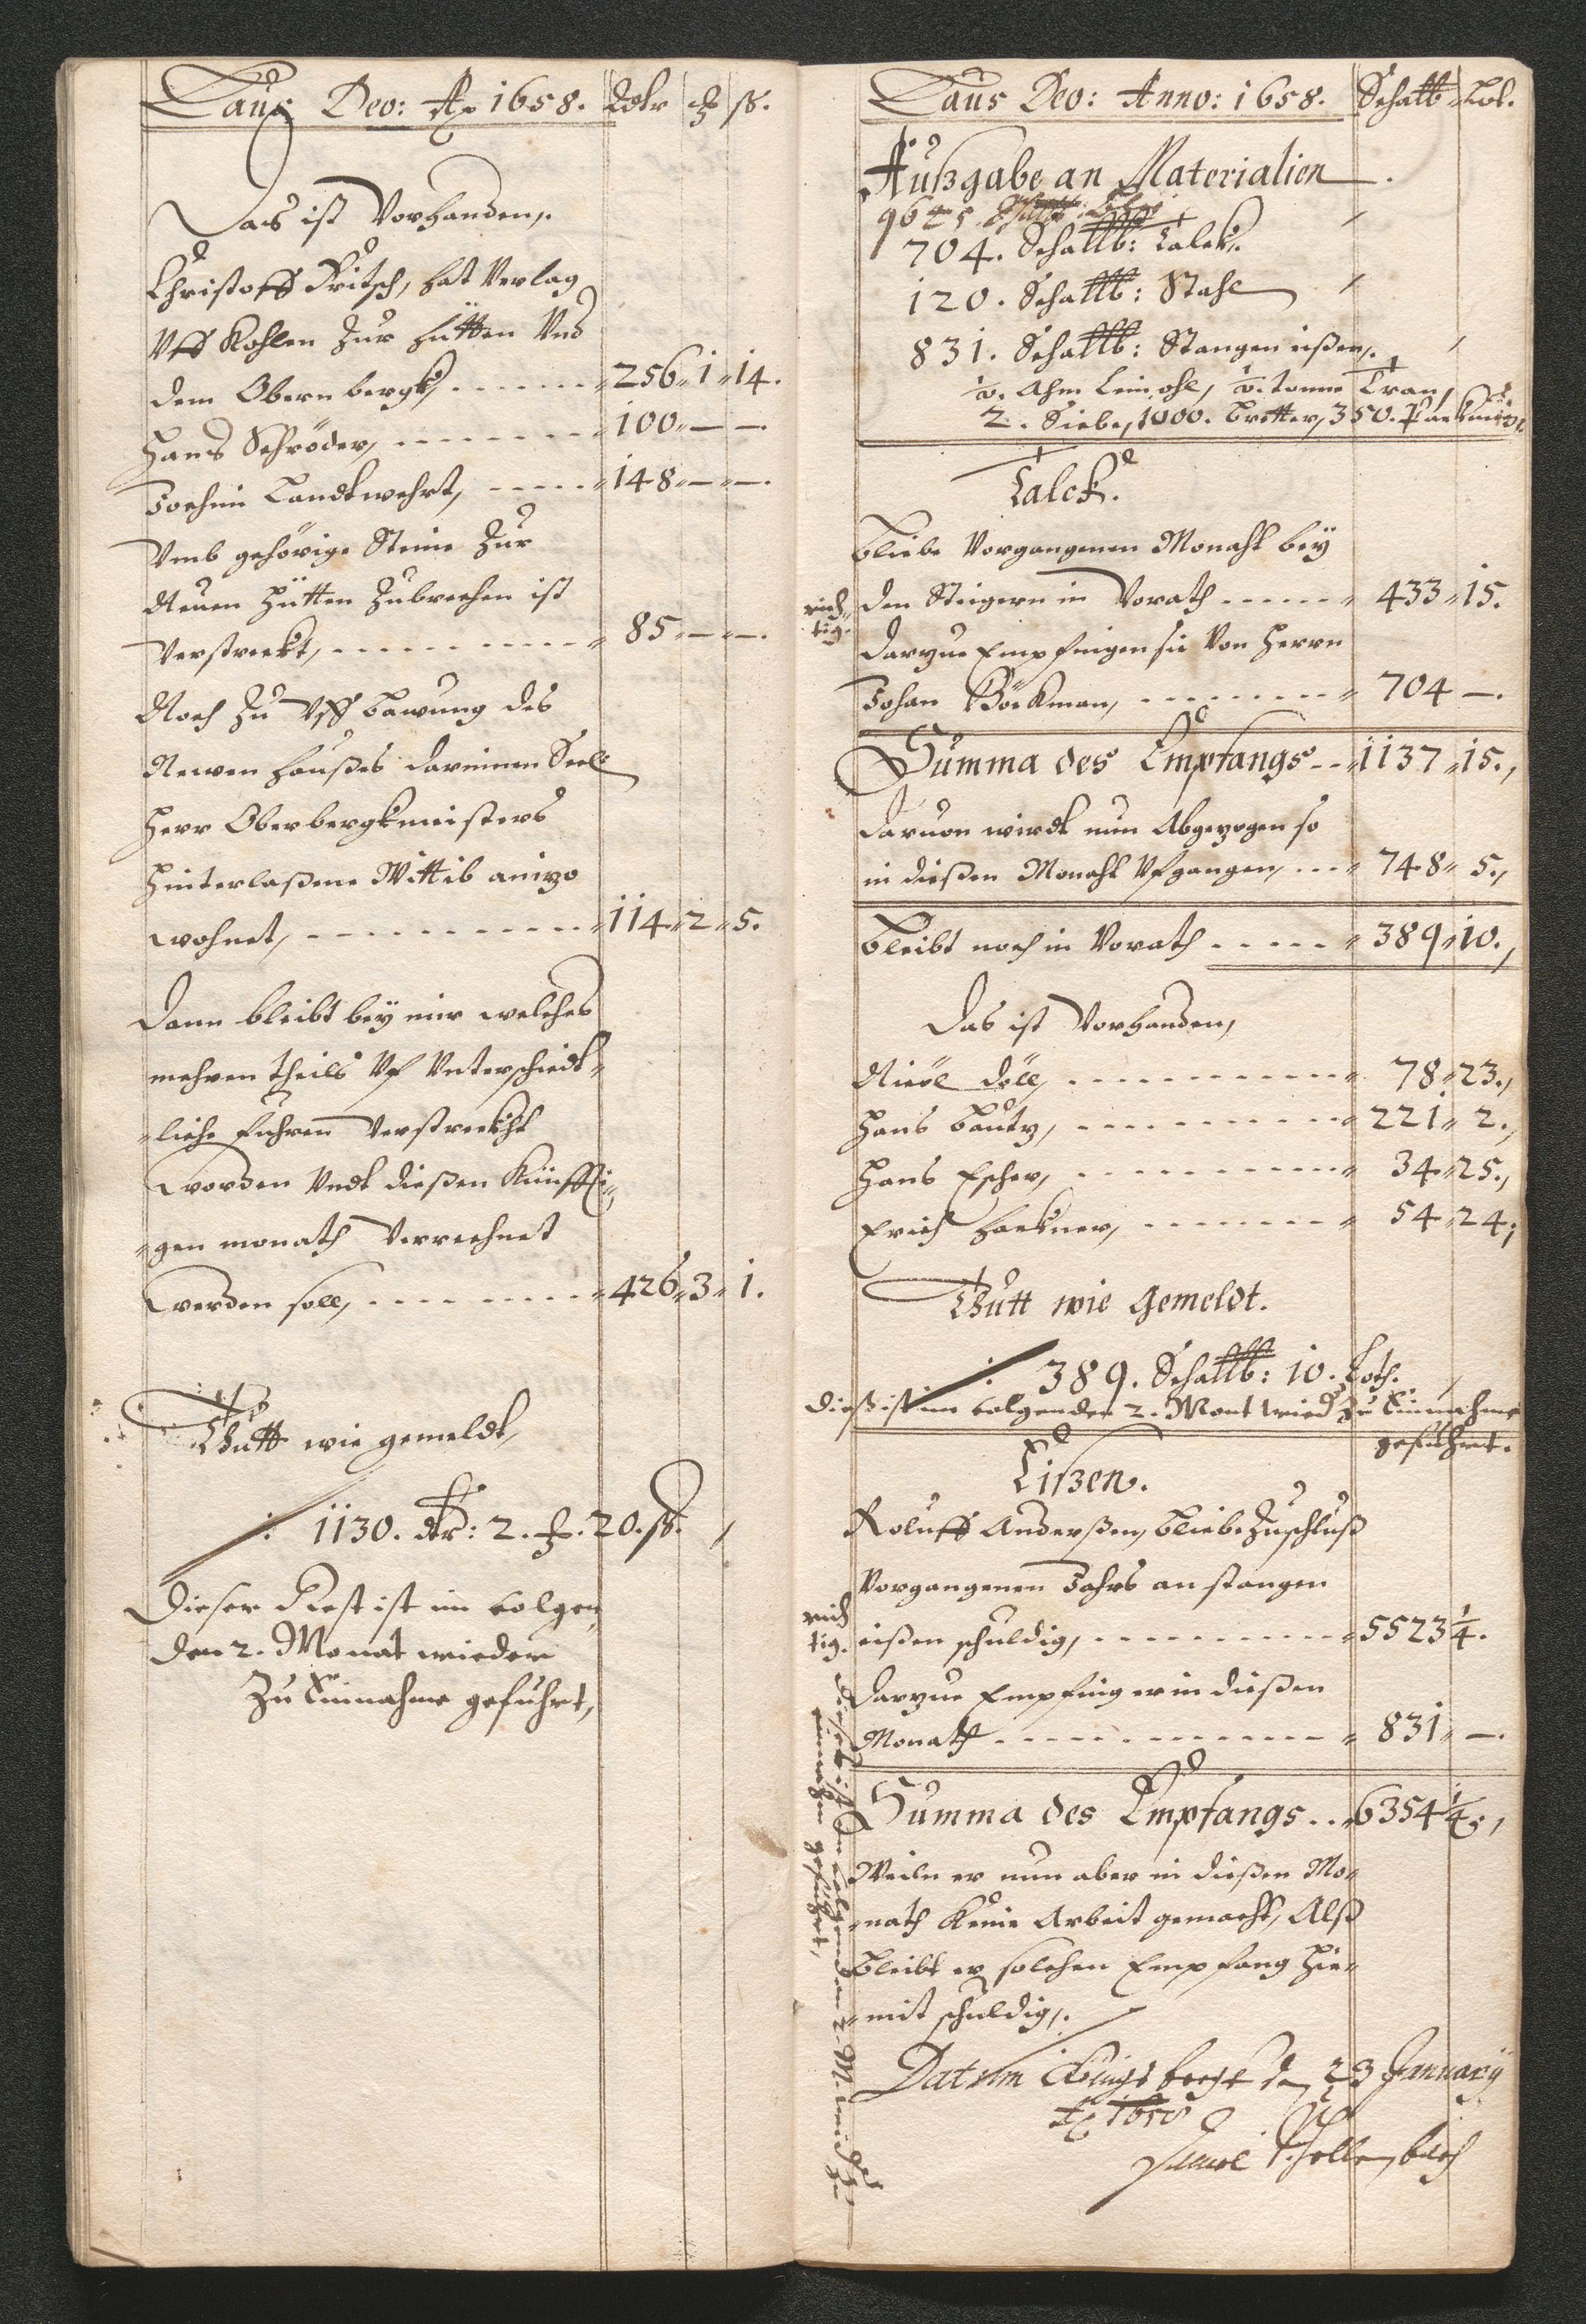 Laus Deo: Ao 1658. Rdlr
Das ist Vorhanden,.
Christoff Fritsch, hat Verlag
Vff Kohlen Zur hütten Vnd
dem Obern bergk, 256 " 1 " 14.
Hans Schröder, 100 " — " —.
Jochim Landtwehrt, 148 " — " —.
Vmb gehörige Steine Zur
Neuen Hütten Zubrechen ist
Verstreckt, 85 " — " —.
Noch Zu Vff bawung des
Newen haußes darinnen Seel
Herr Oberbergkmeisters
Hinterlaßene Wittib anizo
wohnet, 114 " 2 " 5.
Dann bleibt bey mir welches
mehren theils Vf Vnterschiedt"
"liche fuhren Verstreckht
worden Vndt dießen Künffti"
"gen monath Verrechnet
werden soll, 426 " 3 " 1.
Thutt wie gemeldt,
1130. dlr: 2. 20. ß.
Dieser Rest ist im volgen
den 2. Monat wieder
Zu Einnahme gefuhrt,
Laus Deo: Anno: 1658. Schattb Lot.
Außgabe an Materialien.
704. Schaltb: Talck.
120. Schaltb: Stahl
831. Schaltb: Stangen eißen,.
Ahm Lein ohl, tonne Tran,
2. Siebe, 1000. bretter, 350.
Talck.
Bliebe Vorgangenen Monaht bey
rich
tig. den Steigern in Vorath 433 " 15.
Darzue Empfingen sie Von Herrn
Johan Böckman, 704 —.
Summa des Empfangs 1137 " 15.,
Daruon wirdt nun Abgezogen so
in dießen Monaht Vfgangen, 748 " 5.,
Bleibt noch in Vorath 389 " 10.,
Das ist Vorhanden,
Nicöl Döll, 78 " 23.,
Hans Bautz, 221 " 2.,
Hans Escher, 34 " 25.,
Erich Hackner, 54 " 24;
Thutt wie gemeldt.
389. Schaltb: 10. Loth.
Dieß ist im volgenden 2. Mont wied Zu Einnahme
gefuhret.
Eißen.
Roluff Anderßen, bliebe Zuschluß
Vorgangenen Jahrs an stangen
rich
tig. eißen schuldig, 5523 1/4.
Darzue Empfing er in dießen
Monath 831 " —.
Summa des Empfangs 6354 1/4,
Weiln er nun aber in dießen Mo"
"nath Keine Arbeit gemacht, Alß
bleibt er solchen Empfang Hie"
"mit schuldig,.
Datum Königsbergk den 23 January
Ao 1658
dieser ist im volgenden 2. M. wied Zu
einnahm gefuhrt,